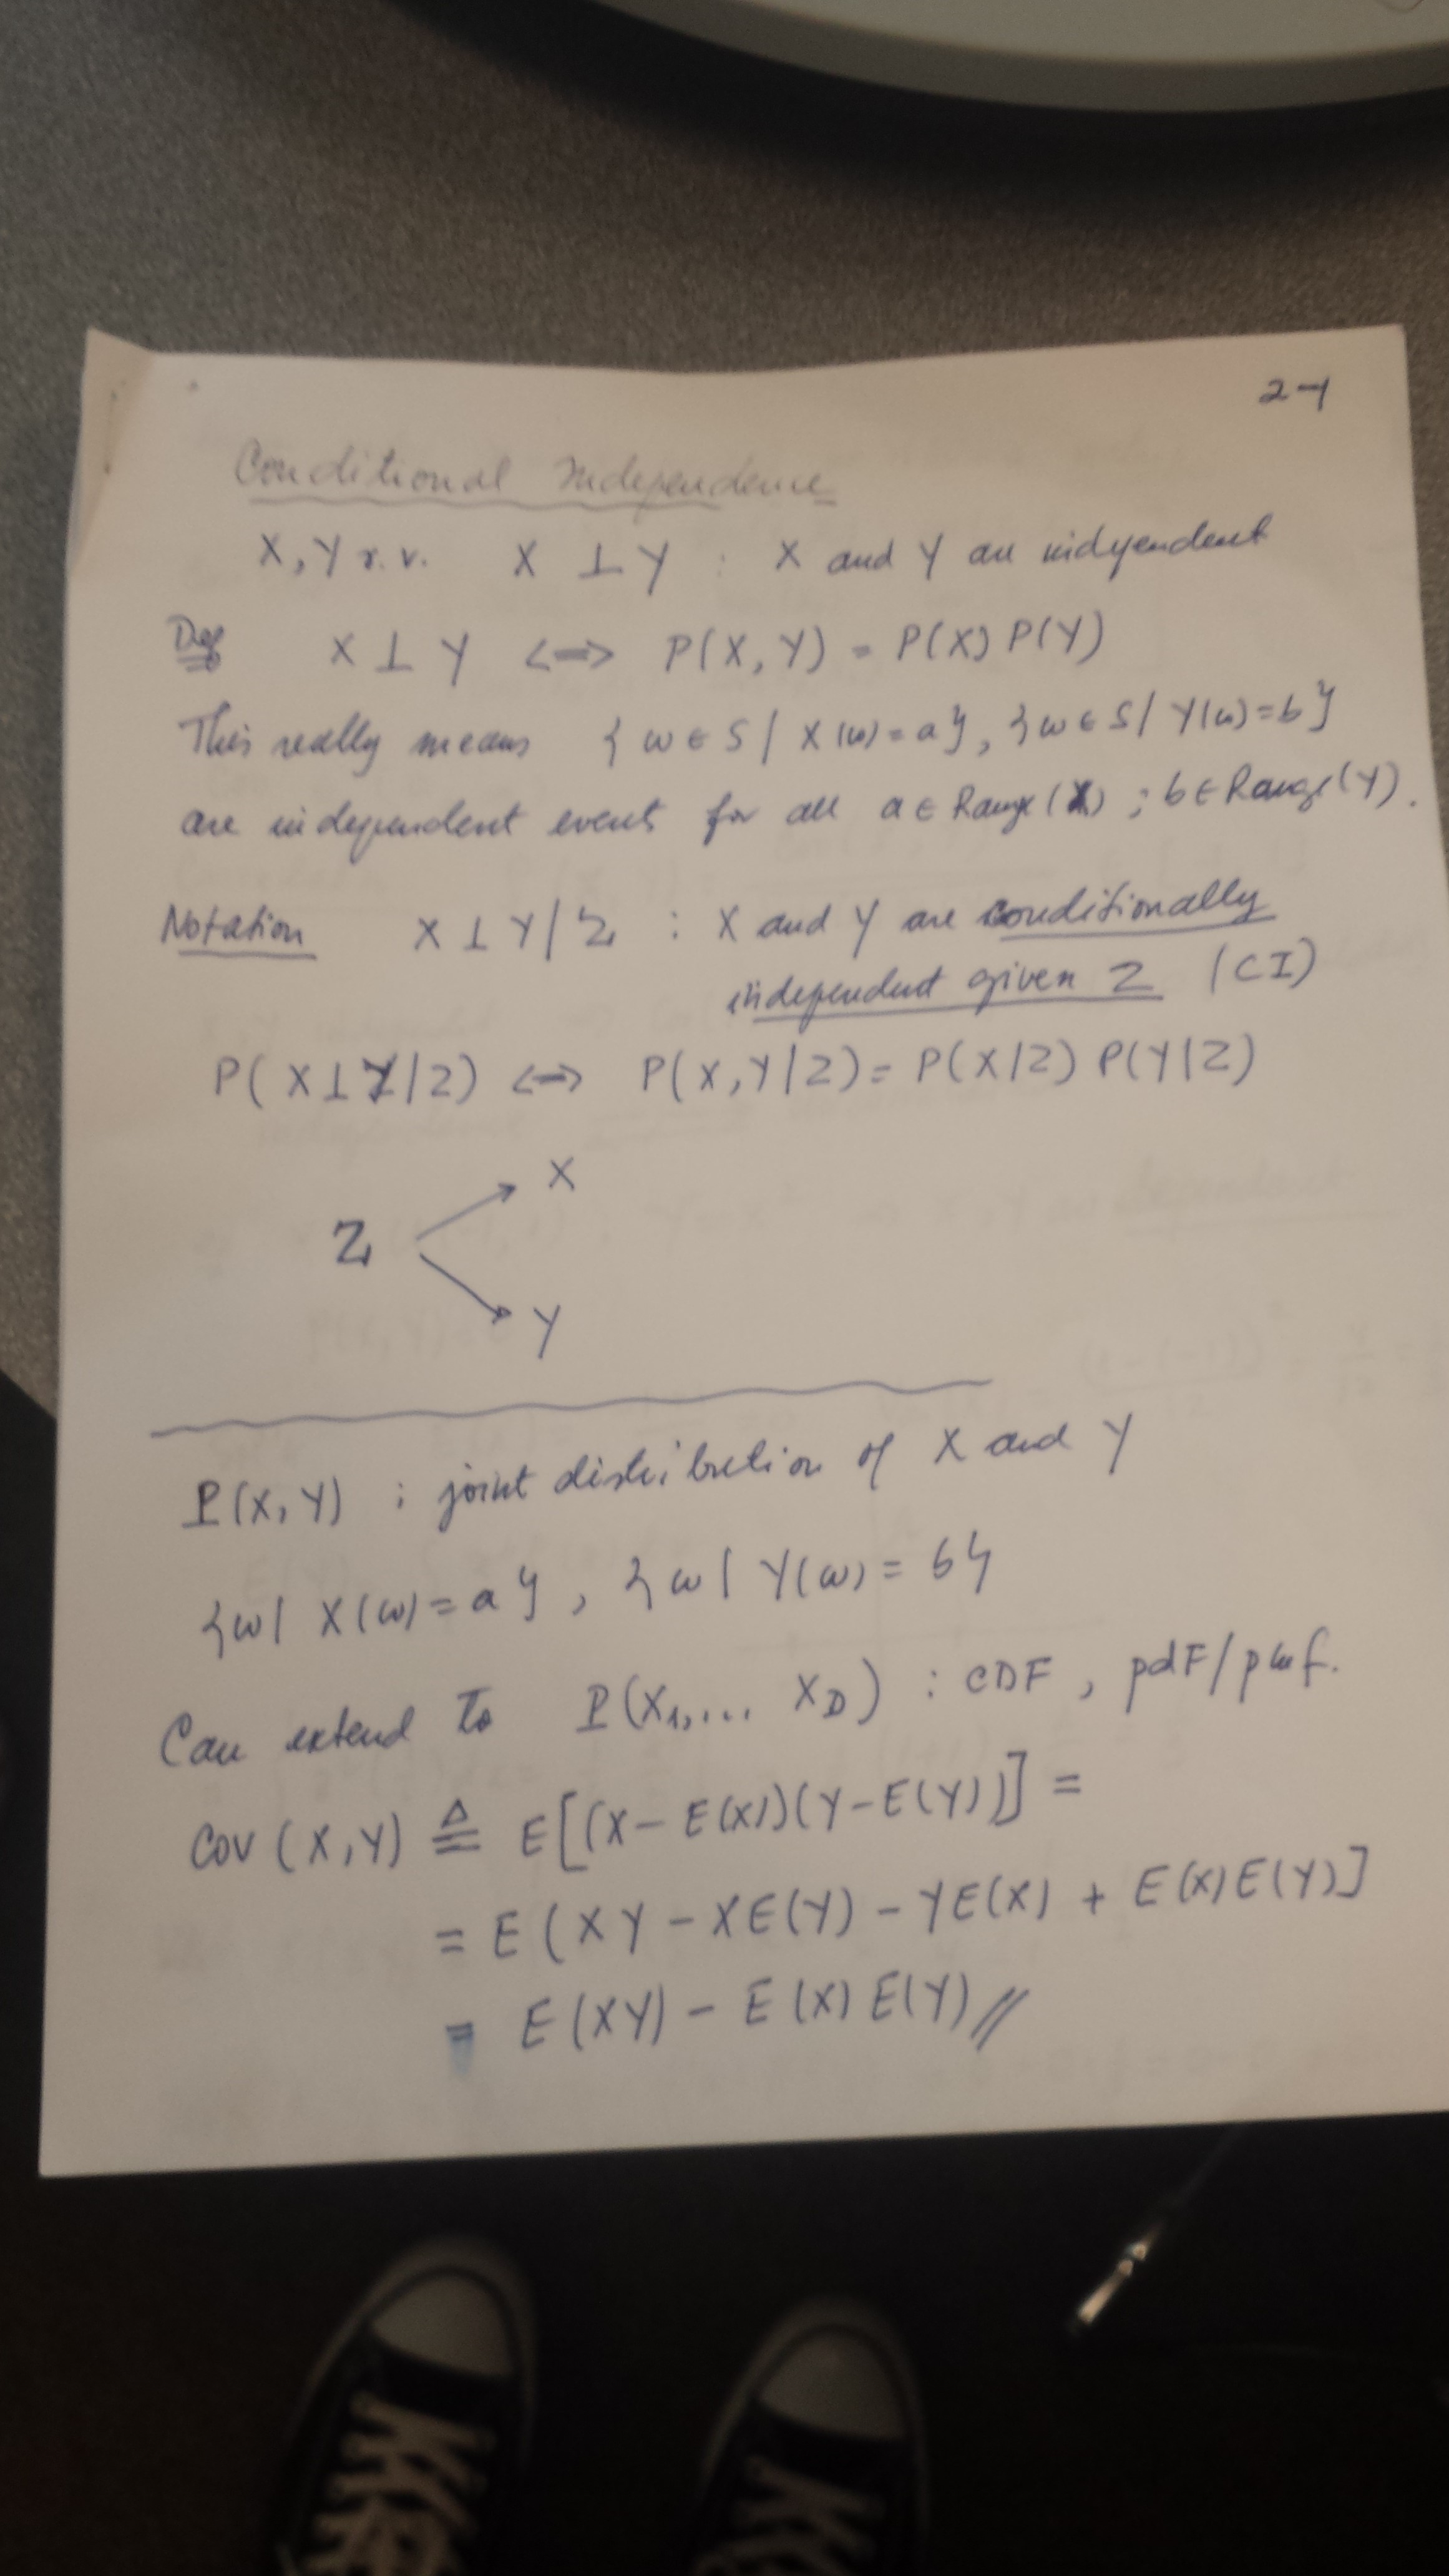 2-1
Conditional Independence
X, Y r.v. X ⊥ Y : X and Y are independent
Def X ⊥ Y <=> P(X, Y) = P(X) P(Y)
This really means {ω ∈ S / X(ω) = a}, {ω ∈ S / Y(ω) = b}
are independent events for all a ∈ Range (X) ; b ∈ Range (Y).
Notation X ⊥ Y / Z : X and Y are conditionally
independent given Z (CI)
P( X ⊥ Y / Z) <=> P(X, Y | Z) = P(X | Z) P(Y | Z)
X
Z
Y
P(X, Y) : joint distribution of X and Y
{ω | X(ω) = a}, {ω | Y(ω) = b}
Can extend to P(X1, ... XD) : CDF, pdF/pmf.
Cov (X, Y) ≜ E[(X - E(X))(Y - E(Y))] =
= E (XY - XE(Y) - YE(X) + E(X)E(Y)]
= E(XY) - E(X) E(Y) //